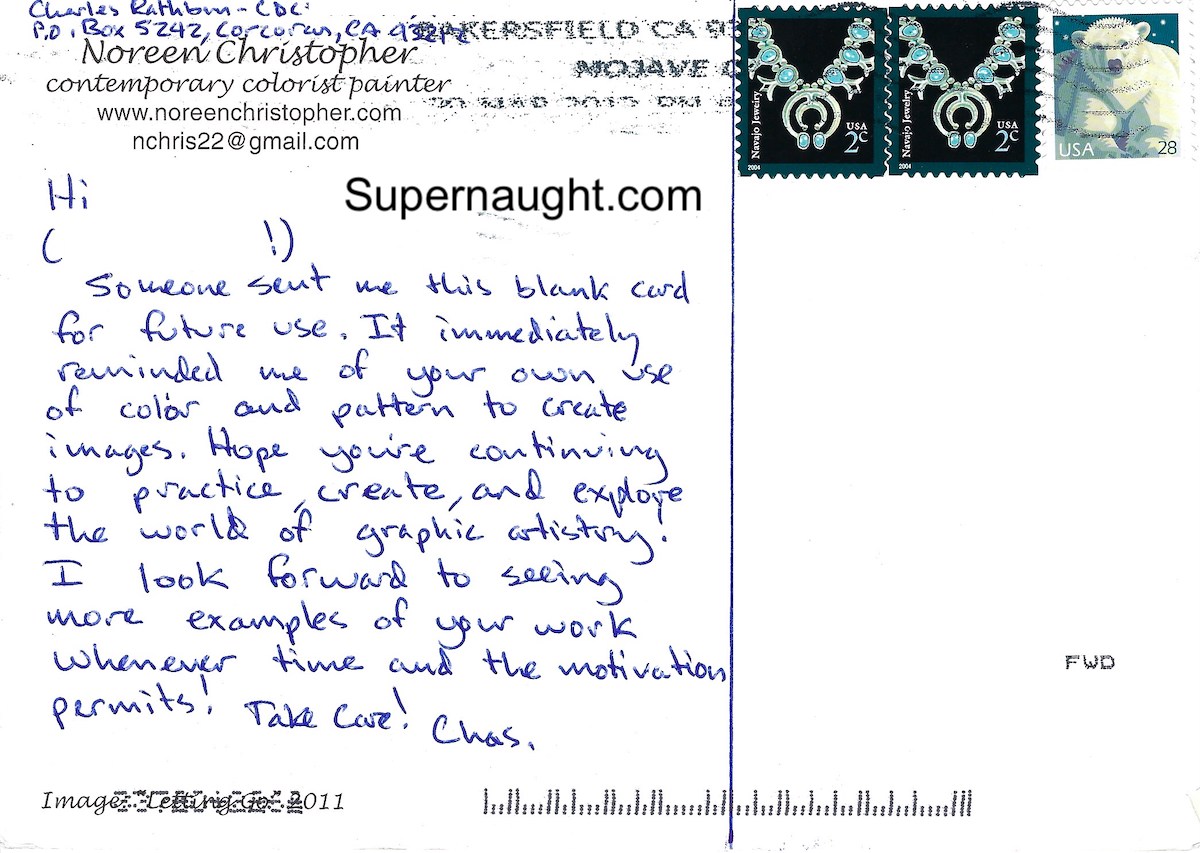 Charles Rathbun - CDC:
P.O. Box 5242, Corcoran, CA 93212
Noreen Christopher
contemporary colorist painter
www.noreenchristopher.com
nchris22@gmail.com
BAKERSFIELD CA 93
MOJAVE
20 MAR 2012 PM
Navajo Jewelry
USA
2c
2004
Navajo Jewelry
USA
2c
2004
USA 28
Supernaught.com
Hi
( !)
Someone sent me this blank card
for future use. It immediately
reminded me of your own use
of color and pattern to create
images. Hope you're continuing
to practice, create, and explore
the world of graphic artistry!
I look forward to seeing
more examples of your work
whenever time and the motivation
permits! Take Care! Chas.
FWD
Image: "Letting Go" 2011